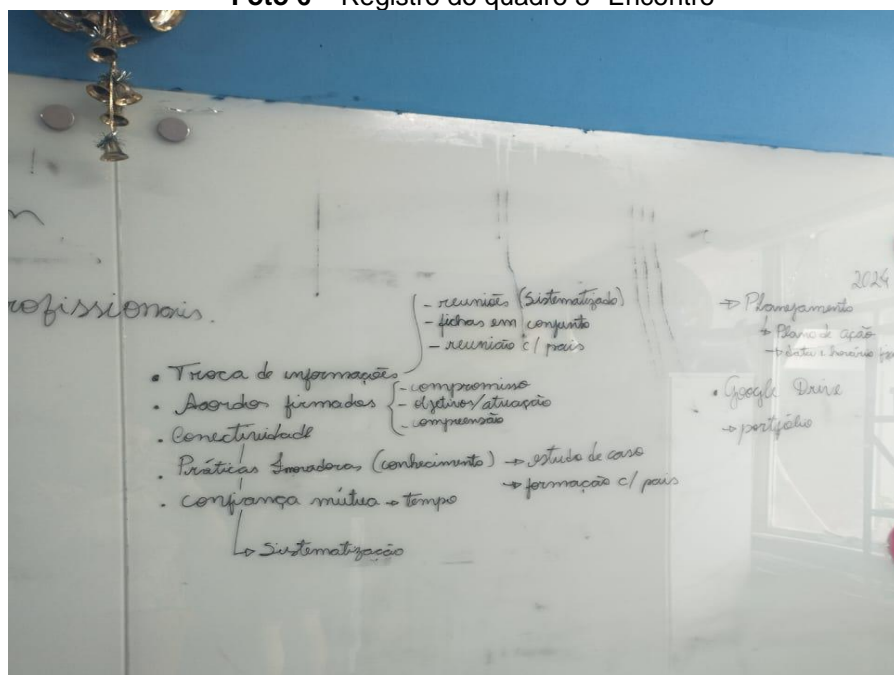 rofissionais.
- reuniões (Sistematizado)
- fichas em conjunto
- reunião c/ pais
• Troca de informações
• Acordos firmados
- compromisso
- objetivos/atuação
- compreensão
• Conectividade
• Práticas Inovadoras (conhecimento) → estudo de caso
→ formação c/ pais
• confiança mútua → tempo
↳ Sistematização
2024
→ Planejamento
↳ Plano de ação
→ data e horário
• Google Drive
→ portfólio